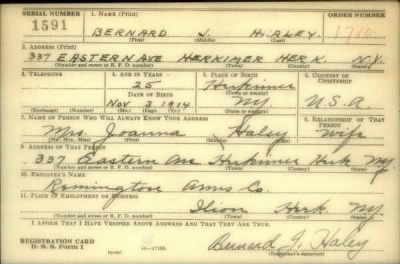 SERIAL NUMBER 1. NAME (Print) ORDER NUMBER
1591 BERNARD J. HALEY 1710
(First) (Middle) (Last)
2. ADDRESS (Print)
337 EASTERN AVE HERKIMER HERK. N.Y.
(Number and street or R. F. D. number) (Town) (County) (State)
3. TELEPHONE 4. AGE IN YEARS 5. PLACE OF BIRTH 6. COUNTRY OF CITIZENSHIP
25 Herkimer
DATE OF BIRTH (Town or county)
Nov. 3 1914 NY. U.S.A.
(Exchange) (Number) (Mo.) (Day) (Yr.) (State or country)
7. NAME OF PERSON WHO WILL ALWAYS KNOW YOUR ADDRESS 8. RELATIONSHIP OF THAT PERSON
Mrs. Joanna Haley Wife
(Mr., Mrs., Miss) (First) (Middle) (Last)
9. ADDRESS OF THAT PERSON
337 Eastern Ave Herkimer Herk NY
(Number and street or R. F. D. number) (Town) (County) (State)
10. EMPLOYER'S NAME
Remington Arms Co.
11. PLACE OF EMPLOYMENT OR BUSINESS
Ilion Herk. NY
(Number and street or R. F. D. number) (Town) (County) (State)
I AFFIRM THAT I HAVE VERIFIED ABOVE ANSWERS AND THAT THEY ARE TRUE.
REGISTRATION CARD
D. S. S. Form 1 (over) 16—17105 Bernard J. Haley
(Registrant's signature)